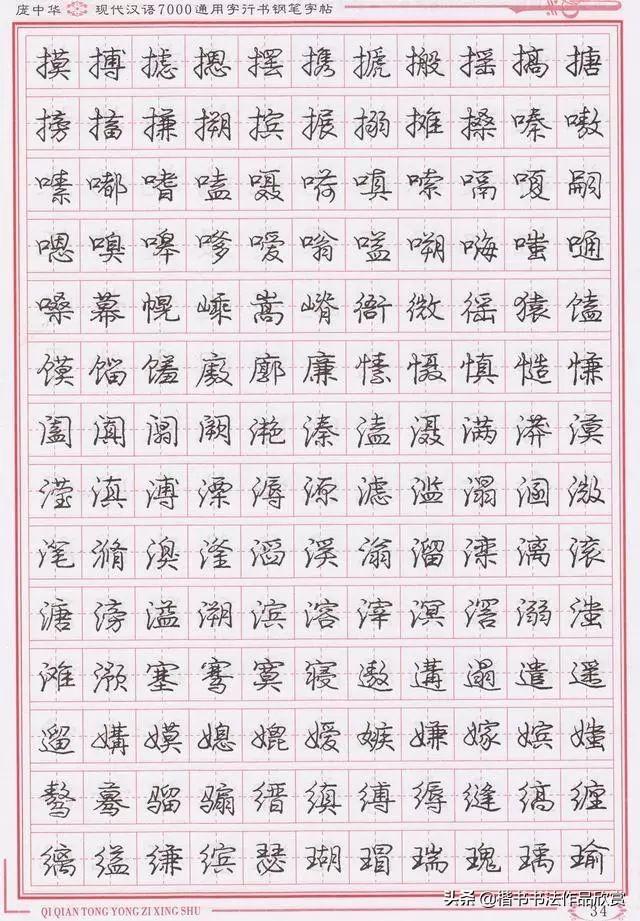 庞中华 现代汉语7000通用字行书钢笔字帖
摸搏摅摁摆携搋搬摇搞搪
搒搐搛搠摈搌搦摊搡嗪嗷
嗉嘟嗜嗑嗫嗬嗔嗦嗝嗄嗣
嗯嗅嗥嗲嗳嗡嗌嗍嗨嗤嗵
嗓幕幌嵊嵩嵴衙微徭猿馌
馍馏馐廒廓廉愫慑慎慥慊
阖阗阘阙滟溱溘滠满漭漠
滢滇溥溧溽源滤滥溻溷溦
滗滫溴滏滔溪滃溜滦漓滚
溏滂溢溯滨溶滓溟滘溺滍
滩滪塞骞寞寝遨遘遢遣遥
遛媾嫫媳媲嫒嫉嫌嫁嫔媸
骜蓦骝骟缙缜缚缛缝缟缠
缡缢缣缤瑟瑚瑁瑞瑰瑀瑜
QI QIAN TONG YONG ZI XING SHU
34
头条 @楷书书法作品欣赏